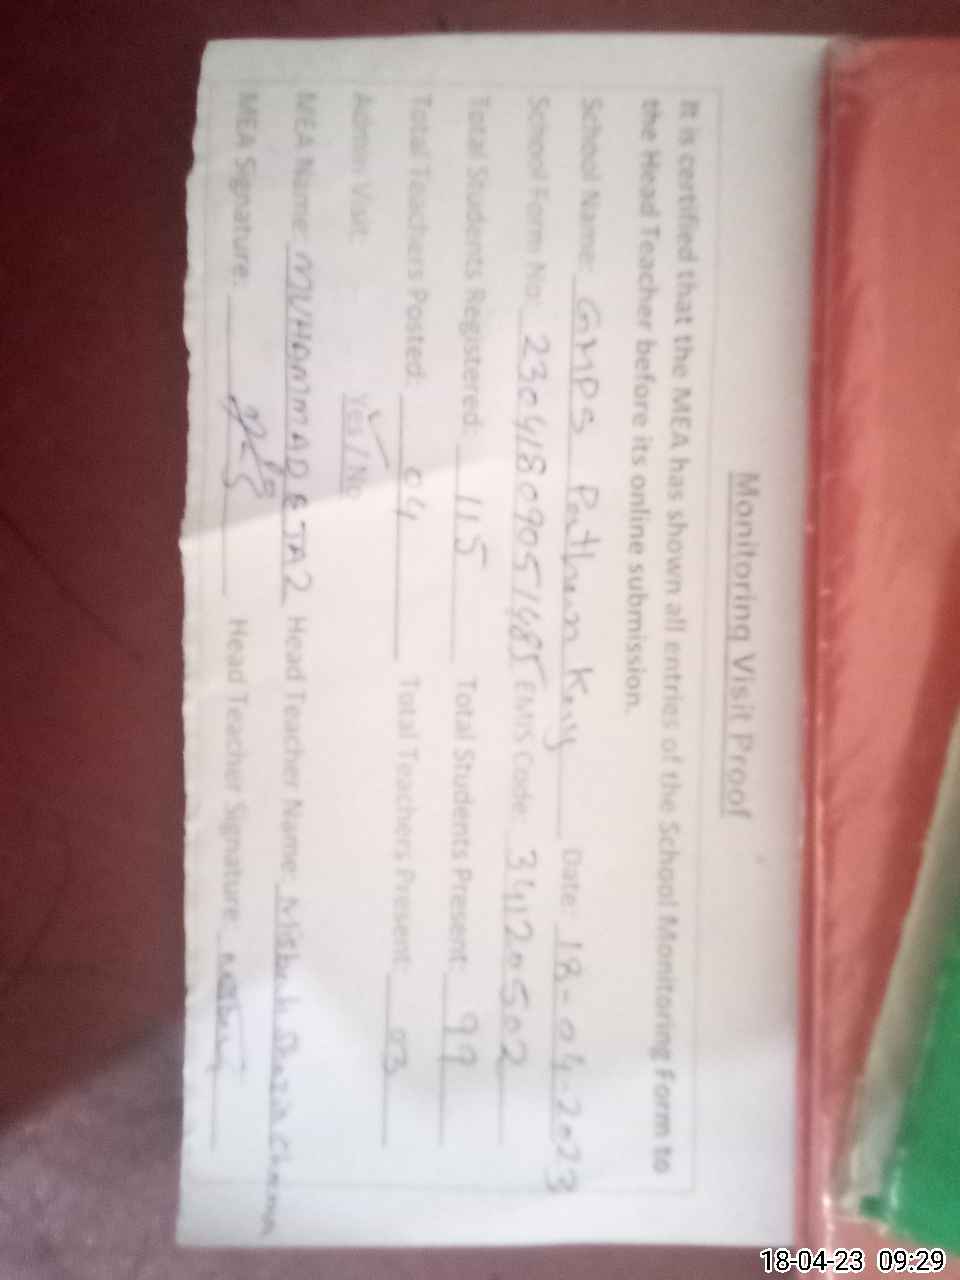 Monitoring Visit Proof
It is certified that the MEA has shown all entries of the School Monitoring Form to
the Head Teacher before its online submission.
School Name: GMPS Pathan Date: 18-04-2023
School Form No: 23041809051485 EMIS Code: 34120502
Total Students Registered: 115 Total Students Present: 99
Total Teachers Posted: 04 Total Teachers Present: 03
Admin Visit: Yes / No
MEA Name: MUHAMMAD EJAZ Head Teacher Name: Misbah
MEA Signature: Head Teacher Signature:
18-04-23 09:29